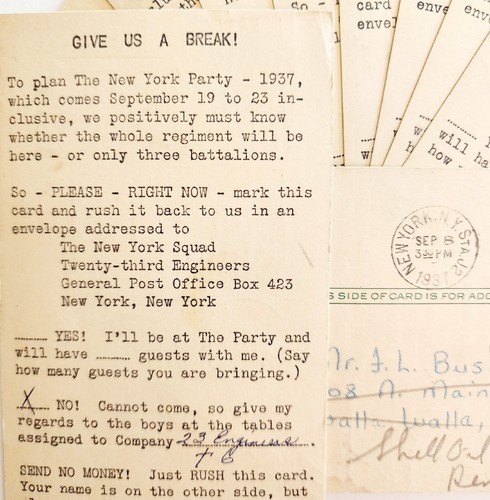 GIVE US A BREAK!
To plan The New York Party - 1937,
which comes September 19 to 23 in-
clusive, we positively must know
whether the whole regiment will be
here - or only three battalions.
So - PLEASE - RIGHT NOW - mark this
card and rush it back to us in an
envelope addressed to
The New York Squad
Twenty-third Engineers
General Post Office Box 423
New York, New York
........ YES! I'll be at The Party and
will have ........ guests with me. (Say
how many guests you are bringing.)
X NO! Cannot come, so give my
regards to the boys at the tables
assigned to Company 23 Engineers
SEND NO MONEY! Just RUSH this card.
Your name is on the other side, but
So -
card
enve
card
enve
enve
will
how
will ha
how -
NEW YORK, N.Y. STA. J2
SEP 8
3 30 PM
1937
S SIDE OF CARD IS FOR ADD
Mr. F. L. Bus
08 N. Main
alla, Walla,
Shell Oil